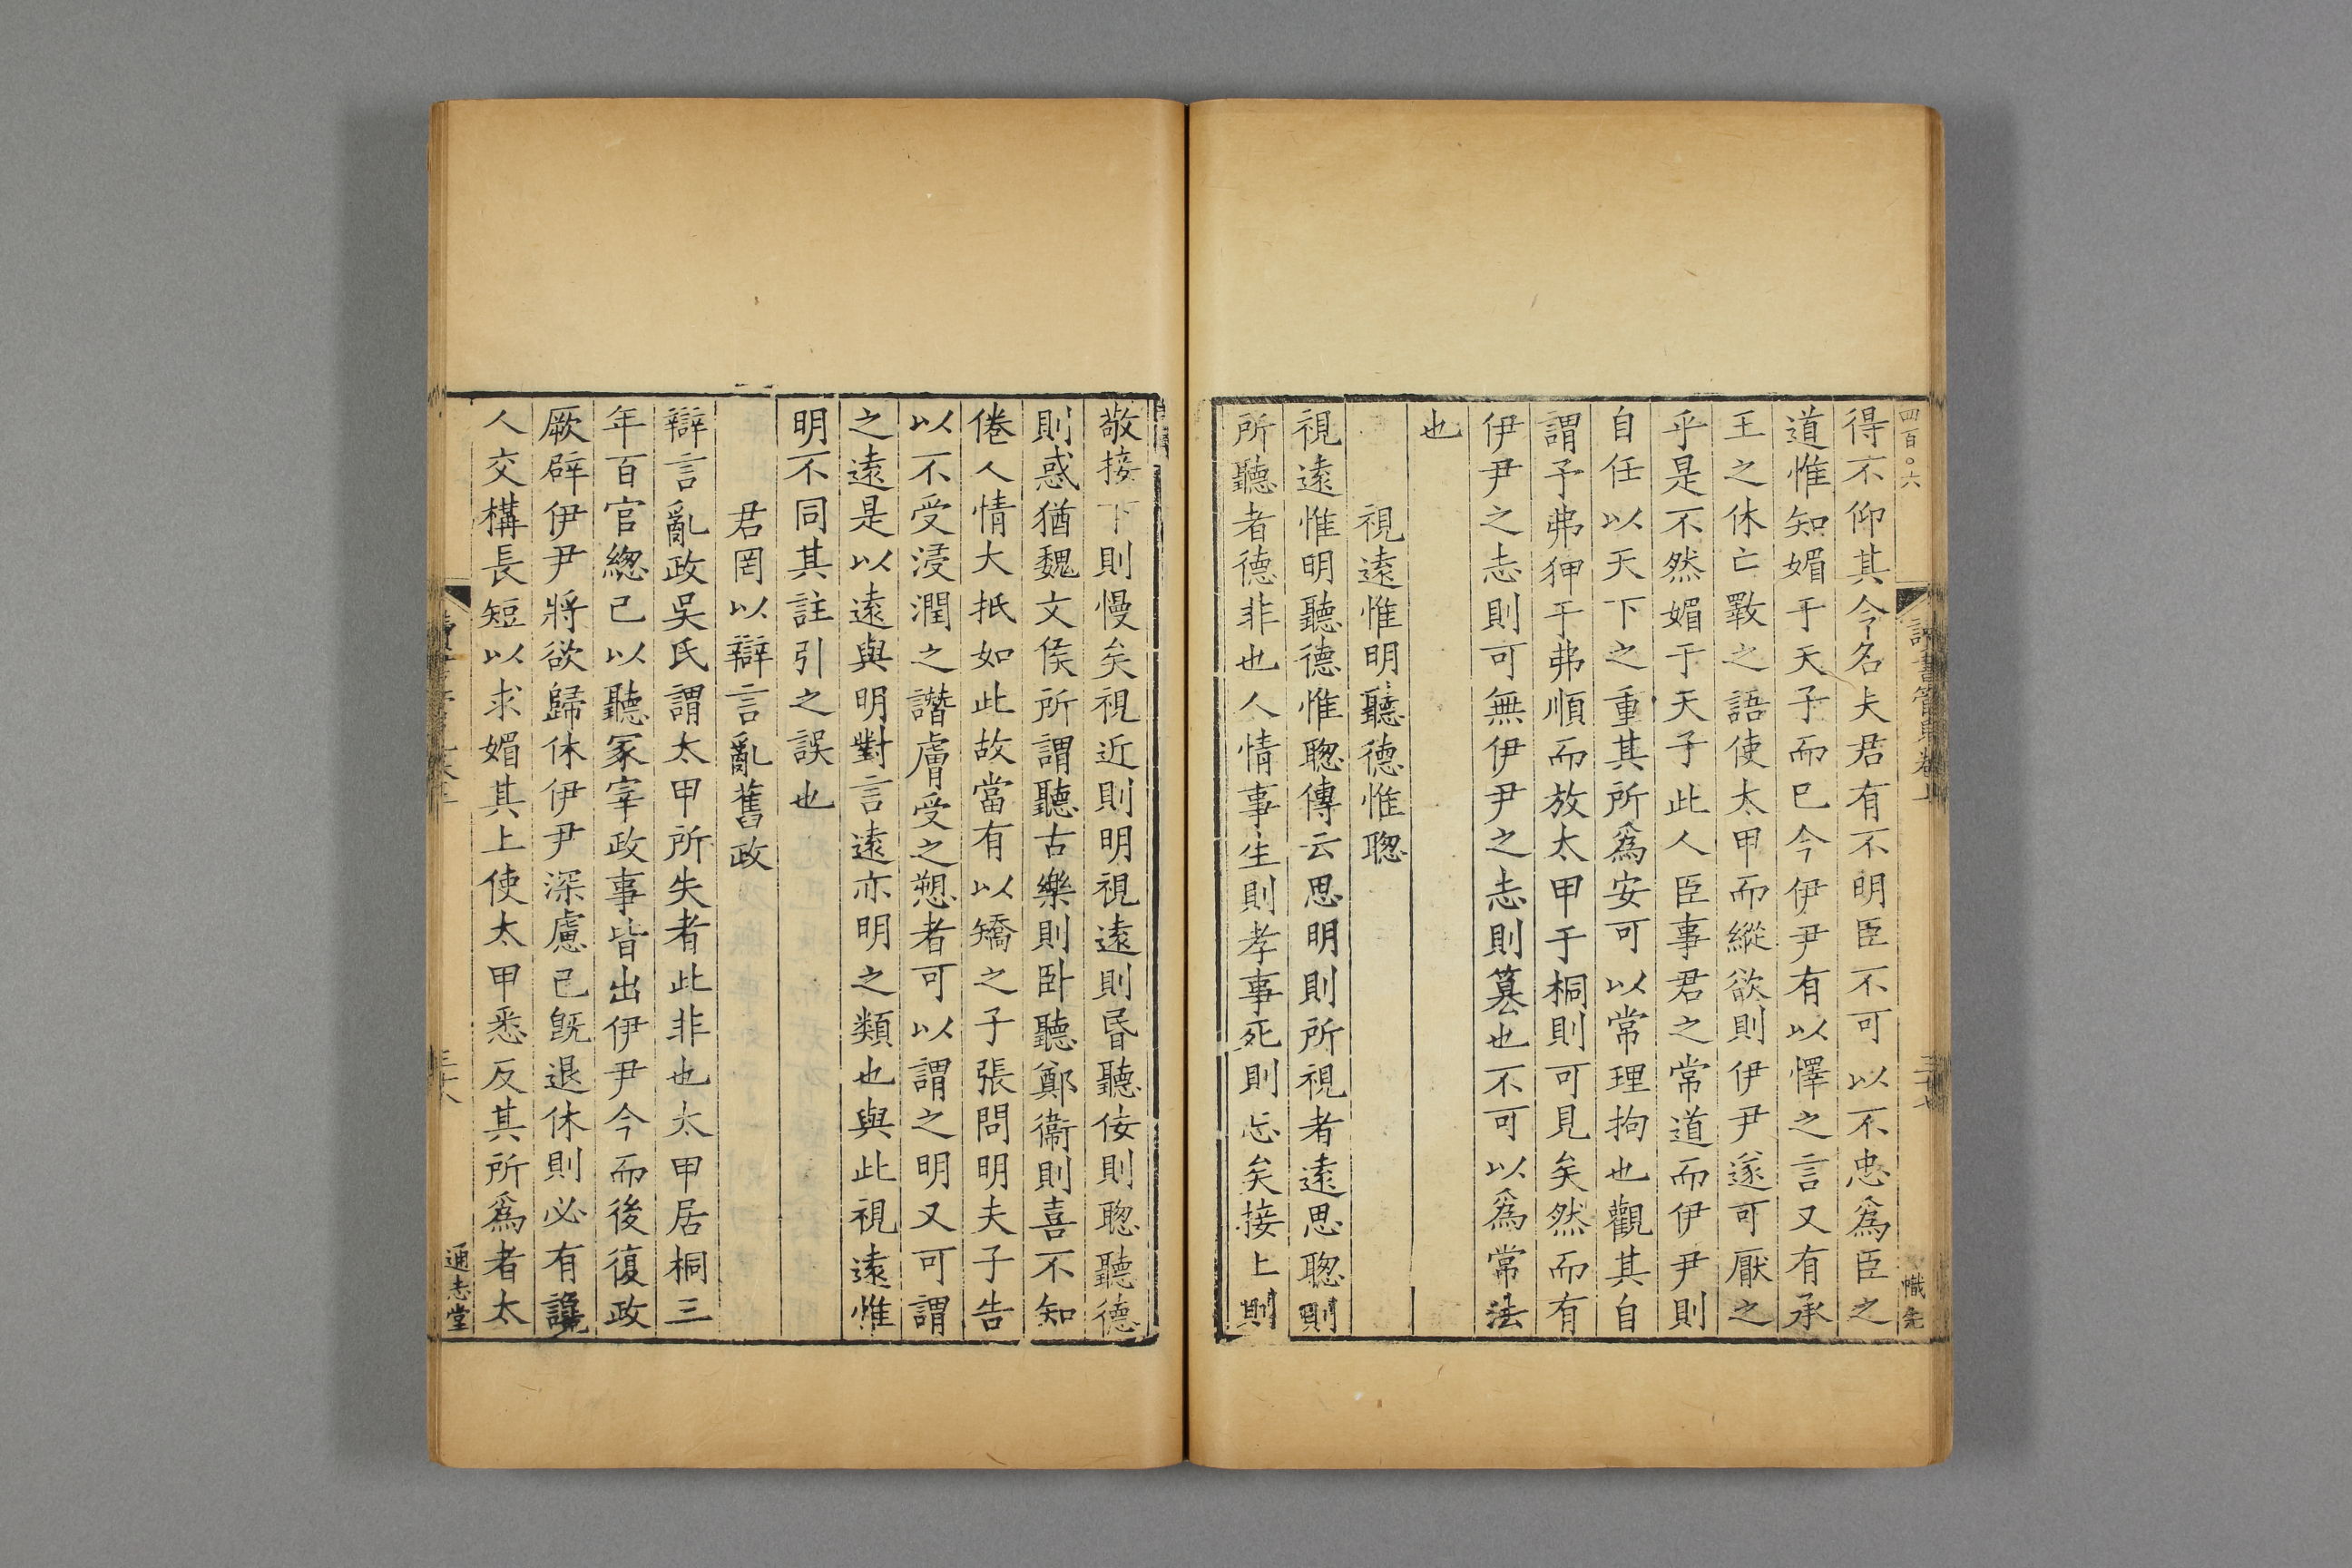 四百〇六
得不仰其令名夫君有不明臣不可以不忠爲臣之
道惟知媚于天子而已今伊尹有以懌之言又有承
王之休亡斁之語使太甲而縱欲則伊尹遂可厭之
乎是不然媚于天子此人臣事君之常道而伊尹則
自任以天下之重其所爲安可以常理拘也觀其自
謂予弗狎于弗順而放太甲于桐則可見矣然而有
伊尹之志則可無伊尹之志則簒也不可以爲常法
也
視遠惟明聽德惟聰
視遠惟明聽德惟聰傳云思明則所視者遠思聰則
所聽者德非也人情事生則孝事死則忘矣接上則
敬接下則慢矣視近則明視遠則昏聽佞則聰聽德
則惑猶魏文侯所謂聽古樂則卧聽鄭衞則喜不知
倦人情大抵如此故當有以矯之子張問明夫子告
以不受浸潤之譖膚受之愬者可以謂之明又可謂
之遠是以遠與明對言遠亦明之類也與此視遠惟
明不同其註引之誤也
君罔以辯言亂舊政
辯言亂政吳氏謂太甲所失者此非也太甲居桐三
年百官總己以聽冢宰政事皆出伊尹今而後復政
厥辟伊尹將欲歸休伊尹深慮已旣退休則必有讒
人交構長短以求媚其上使太甲悉反其所爲者太
通志堂